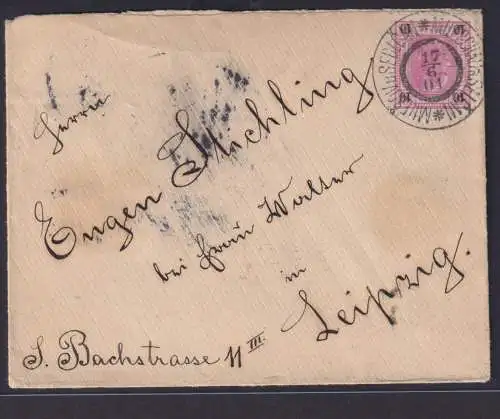 Herrn
Eugen Stichling
bei Frau Walter
in
Leipzig.
S. Bachstrasse 11 III.
10 10
17
6
01
10 10